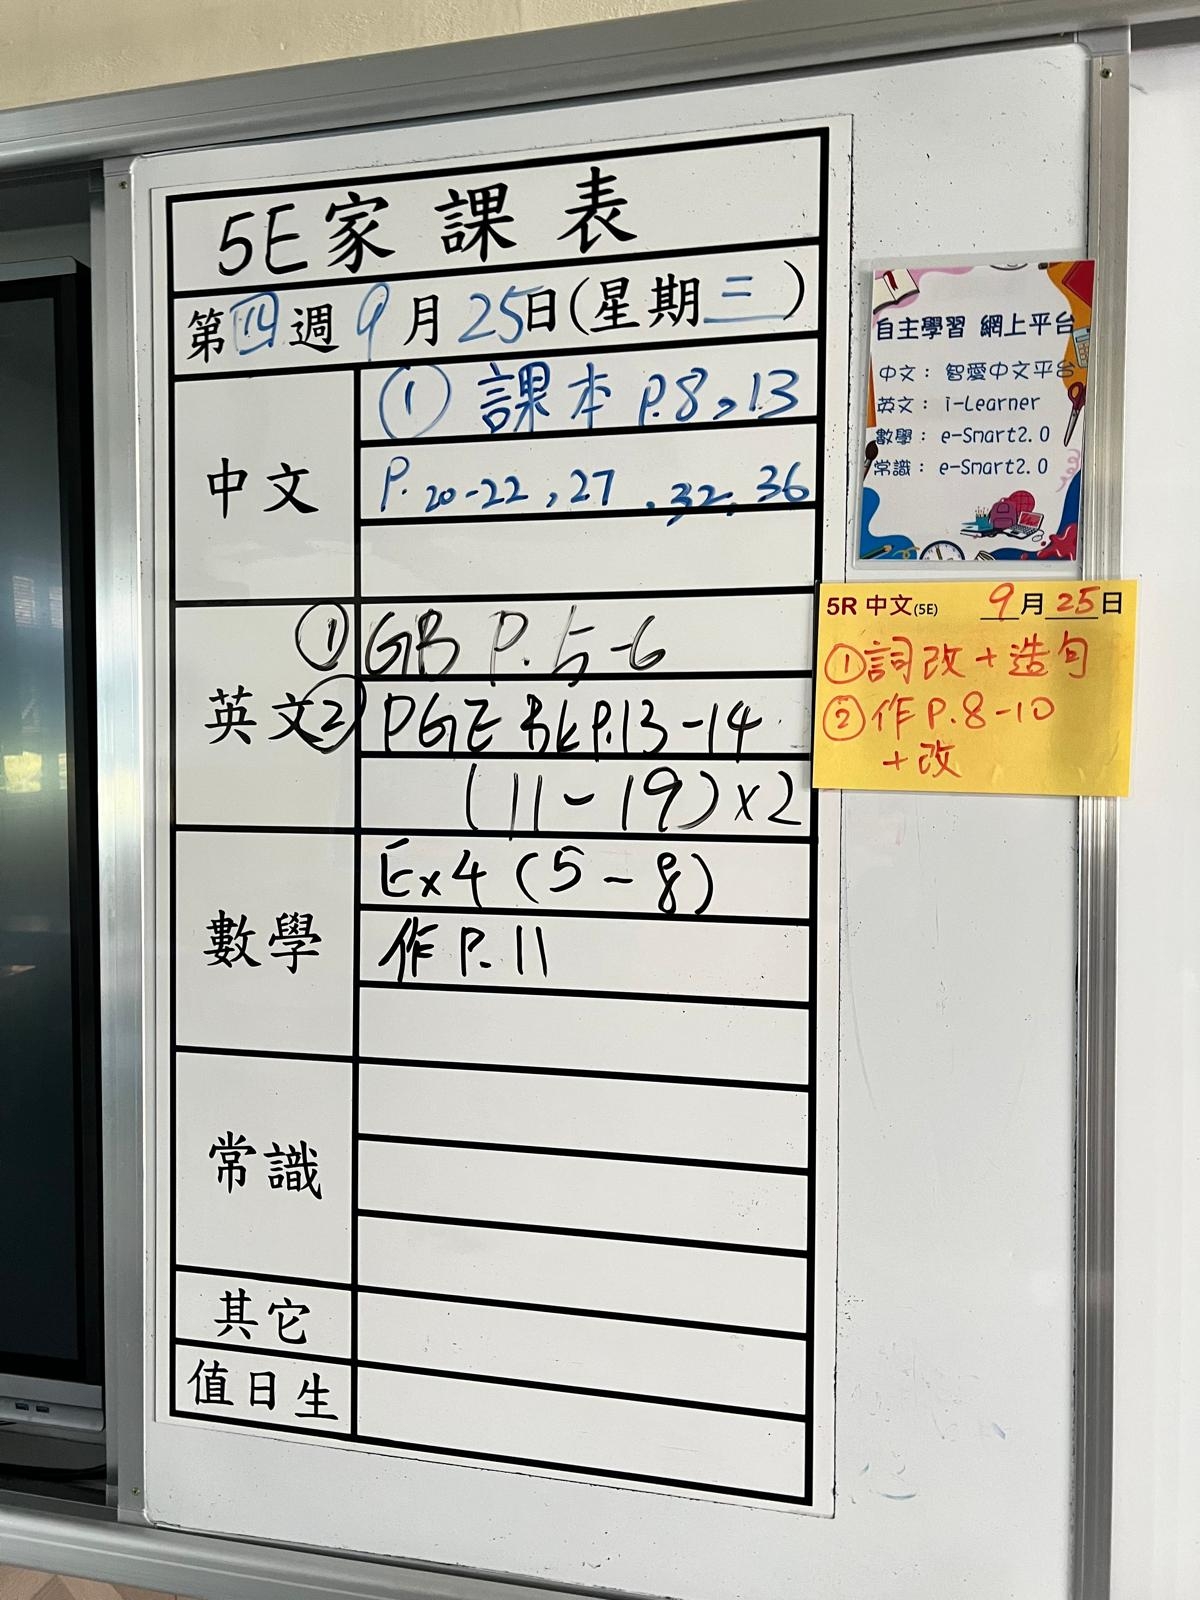 5E家課表
第四週 9月25日(星期三)
中文
① 課本 P.8,13
P.20-22,27,32,36
英文
① GB P.5-6
② PGE Bk P.13-14
(11-19)×2
數學
Ex4 (5-8)
作 P.11
常識
其它
值日生
自主學習 網上平台
中文: 智愛中文平台
英文: i-Learner
數學: e-Smart2.0
常識: e-Smart2.0
5R 中文(5E) 9月25日
①詞改+造句
②作P.8-10
+改